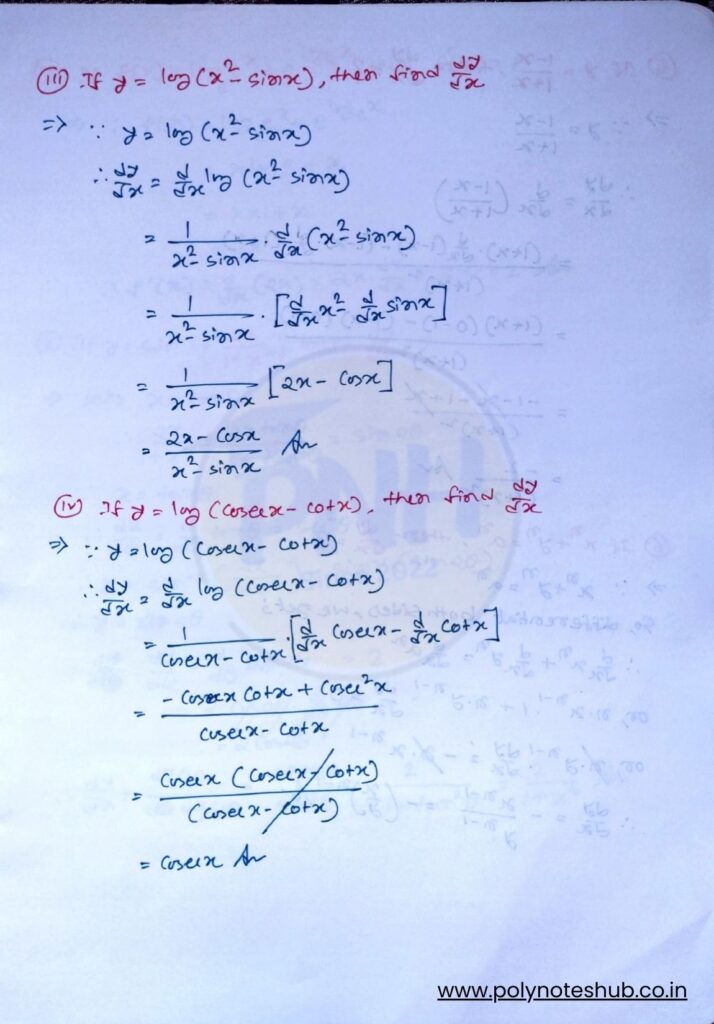 (iii) If y = log(x² - sinx), then find dy/dx
=> ∵ y = log(x² - sinx)
∴ dy/dx = d/dx log (x² - sinx)
= 1/(x² - sinx) . d/dx (x² - sinx)
= 1/(x² - sinx) . [d/dx x² - d/dx sinx]
= 1/(x² - sinx) [2x - cosx]
= (2x - cosx)/(x² - sinx) An
(iv) If y = log (cosecx - cotx), then find dy/dx
=> ∵ y = log (cosecx - cotx)
∴ dy/dx = d/dx log (cosecx - cotx)
= 1/(cosecx - cotx) . [d/dx cosecx - d/dx cotx]
= (- cosecx cotx + cosec²x)/(cosecx - cotx)
= cosecx (cosecx - cotx)/(cosecx - cotx)
= cosecx An
PNH
2022
www.polynoteshub.co.in